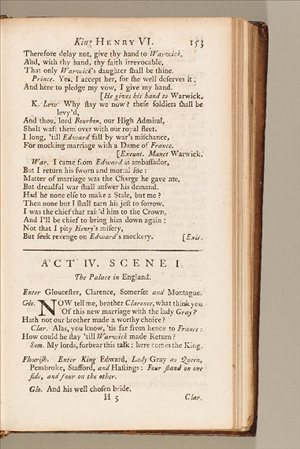 King HENRY VI. 153
Therefore delay not, give thy hand to Warwick,
And, with thy hand, thy faith irrevocable,
That only Warwick's daughter shall be thine.
Prince. Yes, I accept her, for she well deserves it;
And here to pledge my vow, I give my hand.
[He gives his hand to Warwick.
K. Lew. Why stay we now? these soldiers shall be
levy'd,
And thou, lord Bourbon, our High Admiral,
Shall waft them over with our royal fleet.
I long, 'till Edward fall by war's mischance,
For mocking marriage with a Dame of France.
[Exeunt. Manet Warwick.
War. I came from Edward as ambassador,
But I return his sworn and mortal foe:
Matter of marriage was the Charge he gave me,
But dreadful war shall answer his demand.
Had he none else to make a Stale, but me?
Then none but I shall turn his jest to sorrow.
I was the chief that rais'd him to the Crown,
And I'll be chief to bring him down again:
Not that I pity Henry's misery,
But seek revenge on Edward's mockery. [Exit.
ACT IV. SCENE I.
The Palace in England.
Enter Gloucester, Clarence, Somerset and Montague.
Glo. NOW tell me, brother Clarence, what think you
Of this new marriage with the lady Gray?
Hath not our brother made a worthy choice?
Clar. Alas, you know, 'tis far from hence to France:
How could he stay 'till Warwick made Return?
Som. My lords, forbear this talk: here comes the King.
Flourish. Enter King Edward, Lady Gray as Queen,
Pembroke, Stafford, and Hastings: Four stand on one
side, and four on the other.
Glo. And his well chosen bride.
H 5 Clar.